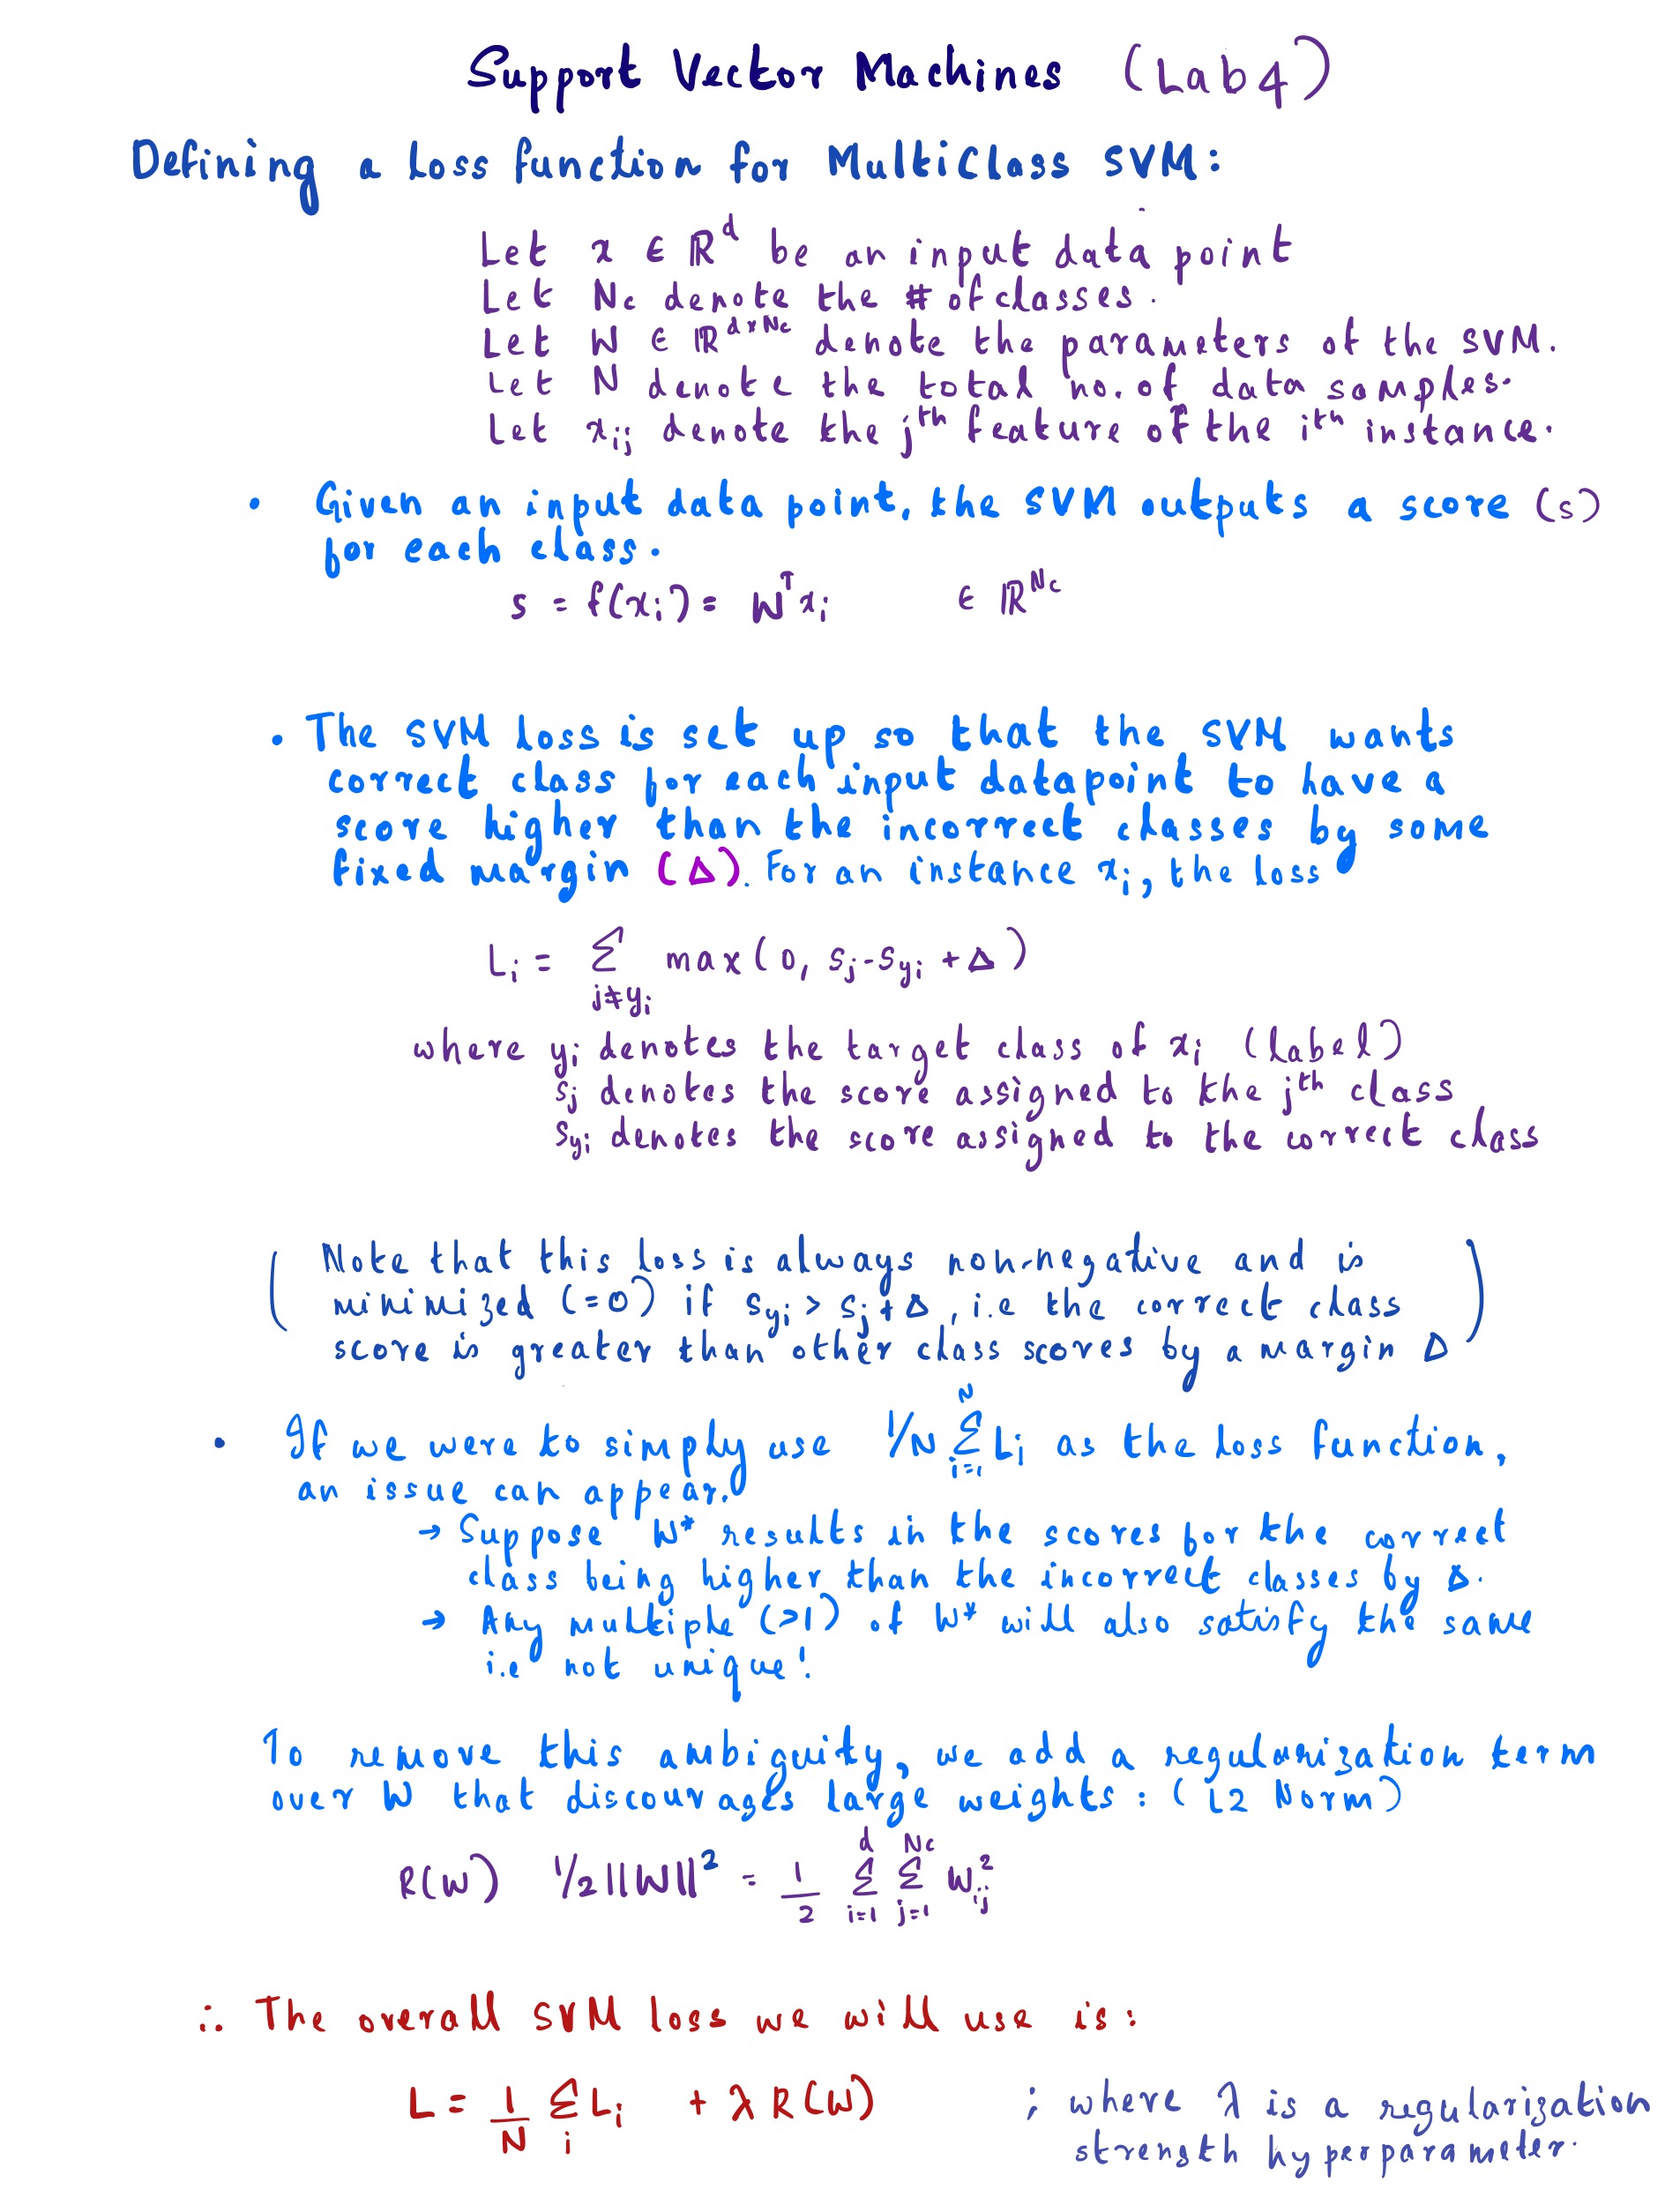 Support Vector Machines (Lab4)
Defining a Loss function for MultiClass SVM:
Let x ∈ ℝ^d be an input data point
Let Nc denote the # of classes.
Let W ∈ ℝ^{d×Nc} denote the parameters of the SVM.
Let N denote the total no. of data samples.
Let x_ij denote the j^th feature of the i^th instance.
• Given an input data point, the SVM outputs a score (s)
for each class.
s = f(x_i) = W^T x_i ∈ ℝ^{Nc}
• The SVM loss is set up so that the SVM wants
correct class for each input datapoint to have a
score higher than the incorrect classes by some
fixed margin (Δ). For an instance x_i, the loss
L_i = Σ_{j≠y_i} max(0, s_j - s_{y_i} + Δ)
where y_i denotes the target class of x_i (label)
s_j denotes the score assigned to the j^th class
s_{y_i} denotes the score assigned to the correct class
(Note that this loss is always non-negative and is
minimized (=0) if s_{y_i} > s_j + Δ, i.e the correct class
score is greater than other class scores by a margin Δ)
• If we were to simply use 1/N Σ_{i=1}^{N} L_i as the loss function,
an issue can appear.
→ Suppose W* results in the scores for the correct
class being higher than the incorrect classes by Δ.
→ Any multiple (>1) of W* will also satisfy the same
i.e not unique!
To remove this ambiguity, we add a regularization term
over W that discourages large weights: (L2 Norm)
R(W) 1/2||W||^2 = 1/2 Σ_{i=1}^{d} Σ_{j=1}^{Nc} W_ij^2
∴ The overall SVM loss we will use is:
L = 1/N Σ_i L_i + λ R(W) ; where λ is a regularization
strength hyperparameter.